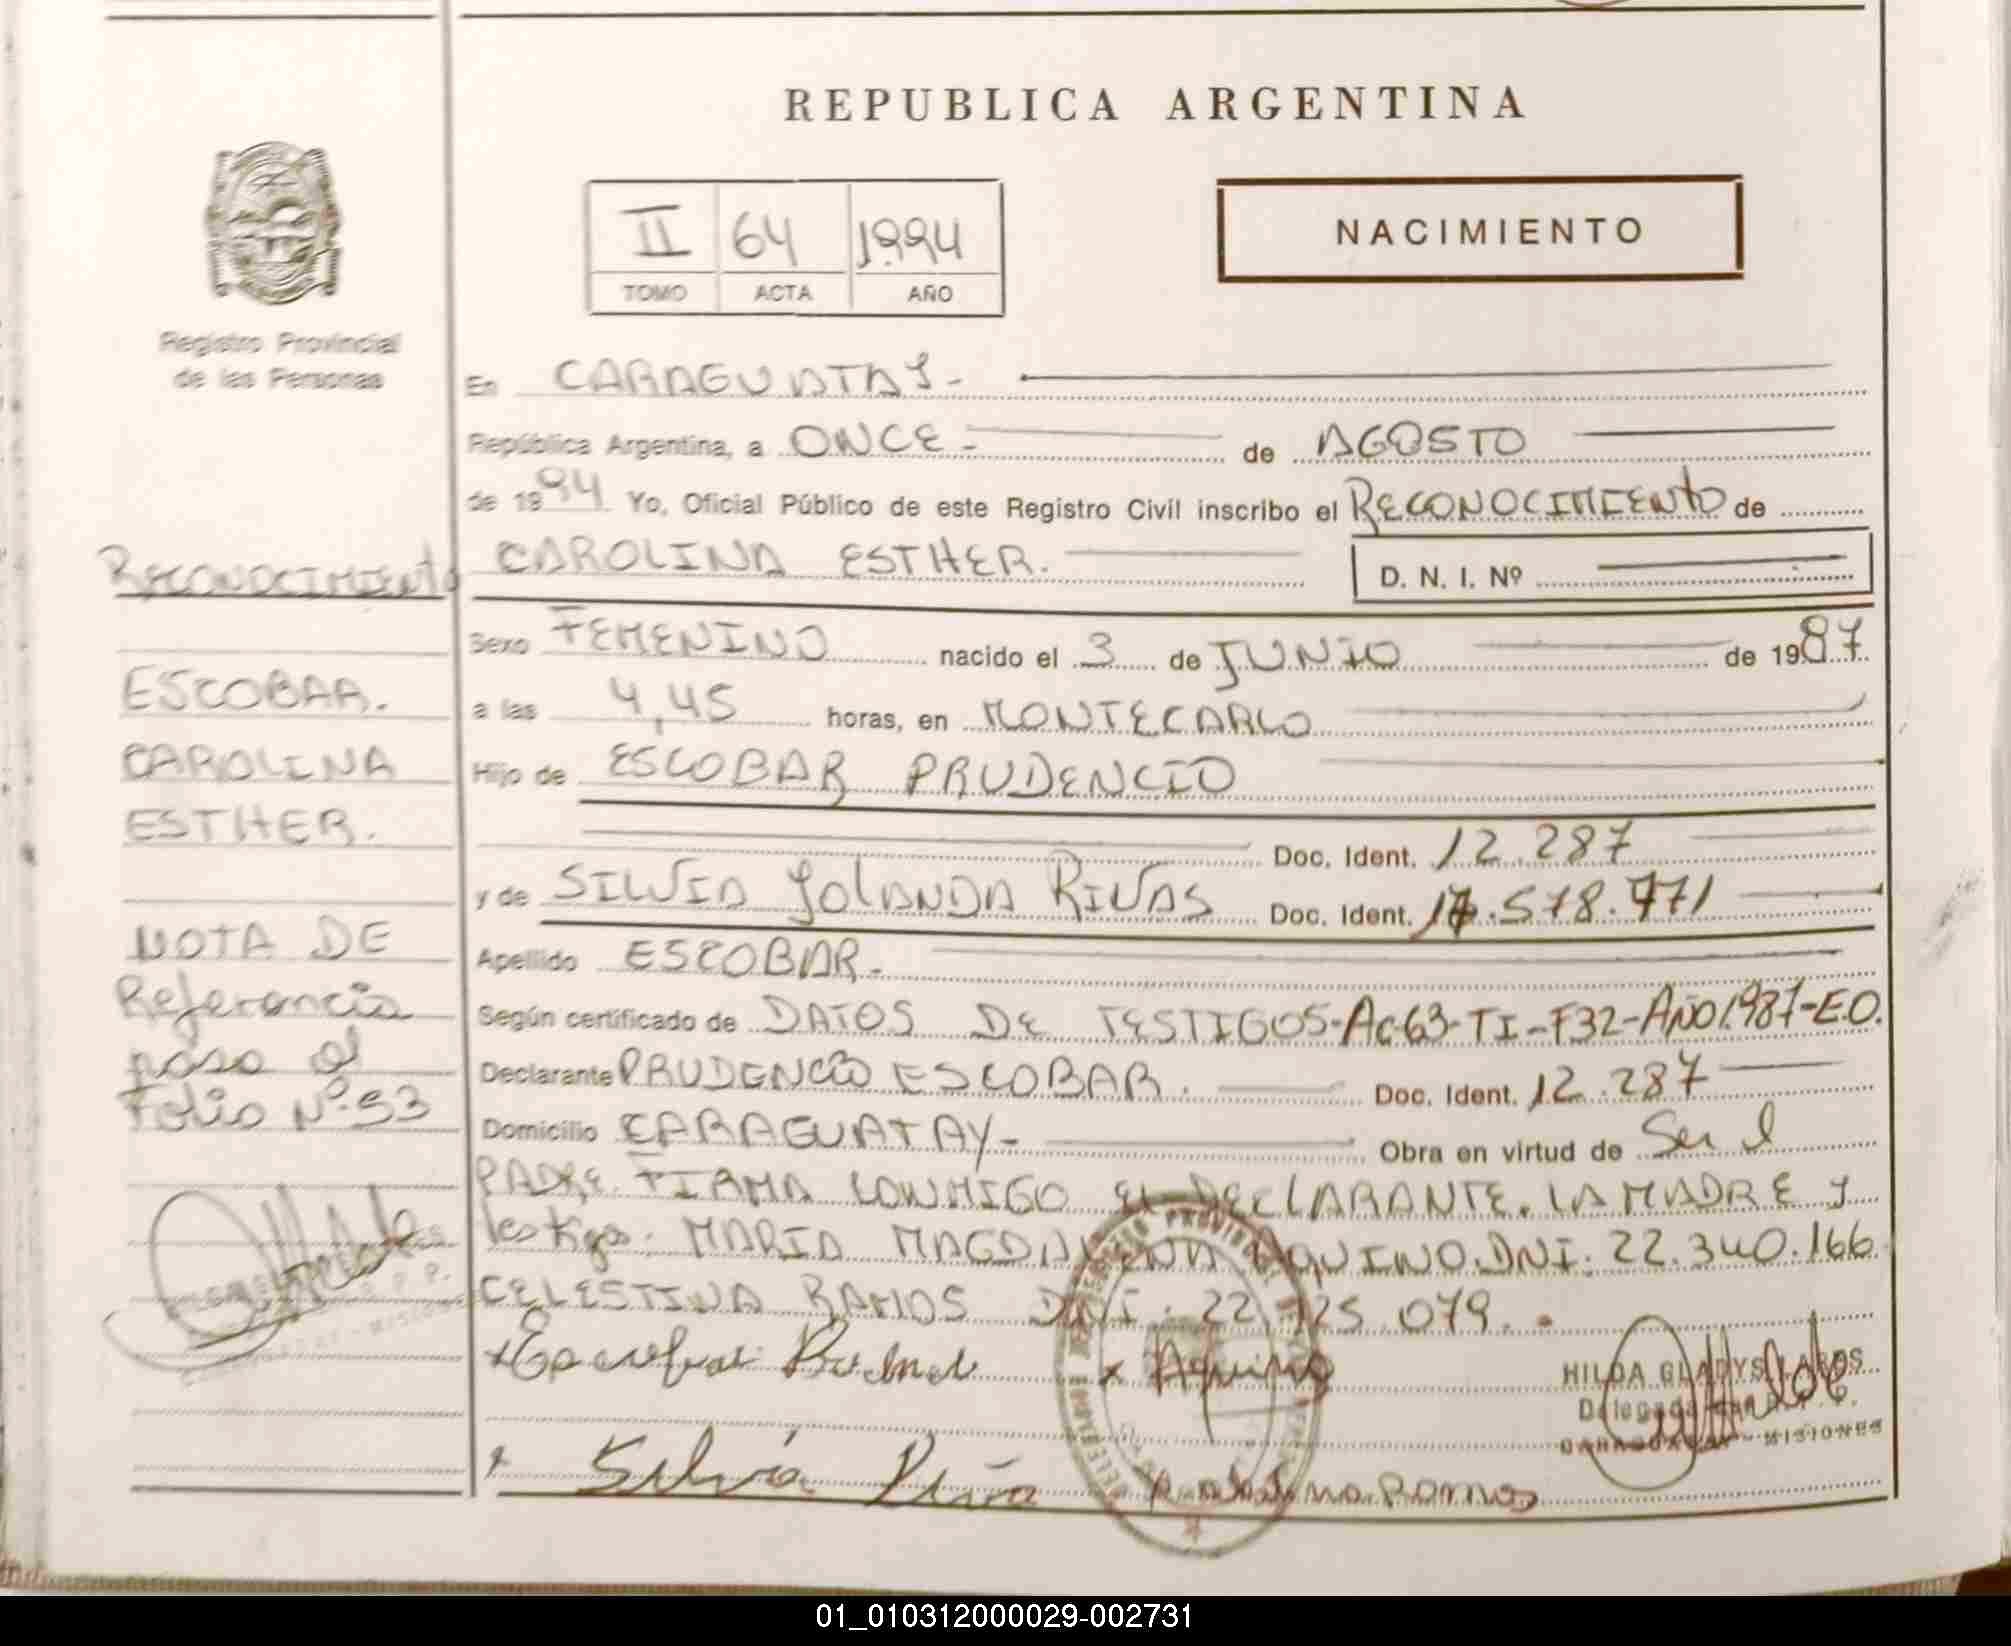 REPUBLICA ARGENTINA
II 64 1994
TOMO ACTA AÑO
NACIMIENTO
Registro Provincial
de las Personas
Reconocimiento
ESCOBAR.
CAROLINA
ESTHER.
NOTA DE
Referencia
paso al
Folio Nº 53
En CARAGUATAY-
República Argentina, a ONCE- de AGOSTO
de 1994 Yo, Oficial Público de este Registro Civil inscribo el RECONOCIMIENTO de
CAROLINA ESTHER. D. N. I. Nº
Sexo FEMENINO nacido el 3 de JUNIO de 1987
a las 4,45 horas, en MONTECARLO
Hijo de ESCOBAR PRUDENCIO
Doc. Ident. 12.287
y de SILVIA YOLANDA RIVAS Doc. Ident. .578.771
Apellido ESCOBAR.
Según certificado de DATOS DE TESTIGOS-Ac-63-TI-F32-AÑO1.987-E.O.
Declarante PRUDENCIO ESCOBAR. Doc. Ident. 12.287
Domicilio CARAGUATAY- Obra en virtud de Ser el
PADRE. FIRMA CONMIGO EL DECLARANTE. LA MADRE Y
testigos. MARIA MAGDALENA AQUINO.DNI. 22.340.166
CELESTINA RAMOS DNI. 22.125.079.-
x Aquino
HILDA GLADYS
CARAGUATAY - MISIONES
Silvia
Ramos
01_010312000029-002731